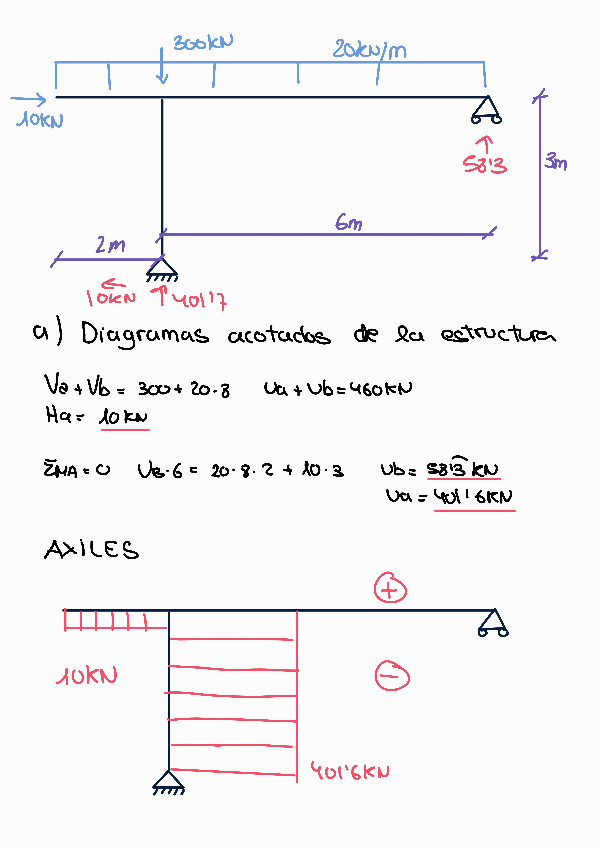 300KN
20KN/m
10KN
58'3
3m
6m
2m
10KN
401'7
a) Diagramas acotados de la estructura
Va + Vb = 300 + 20·8 Va + Vb = 460KN
Ha = 10KN
ΣMA = 0 VB·6 = 20·8·2 + 10·3 Vb = 58'3 KN
Va = 401'6KN
AXILES
+
10KN
−
401'6KN